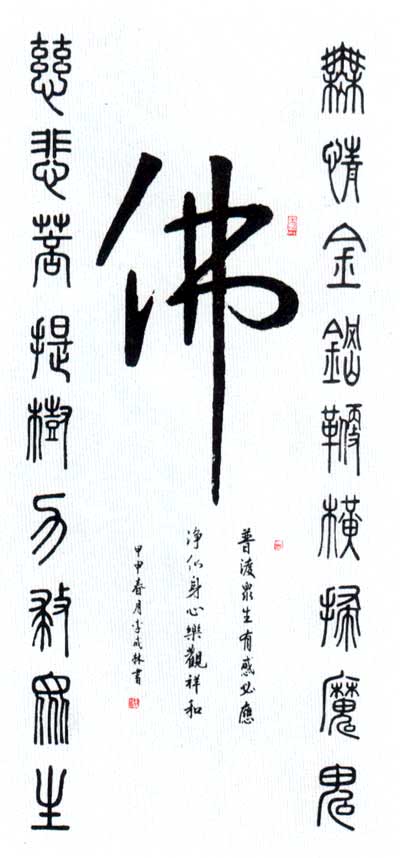 無情金鋼鞭橫掃魔鬼
佛
普渡衆生有感必應
淨化身心樂觀祥和
甲申春月李成林書
慈悲菩提樹方救眾生